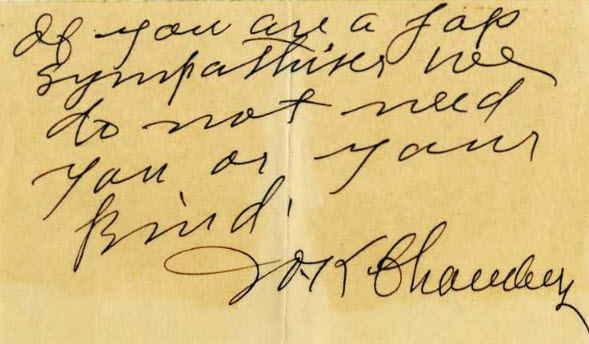 If you are a Jap
sympathiser we
do not need
you or your
kind.